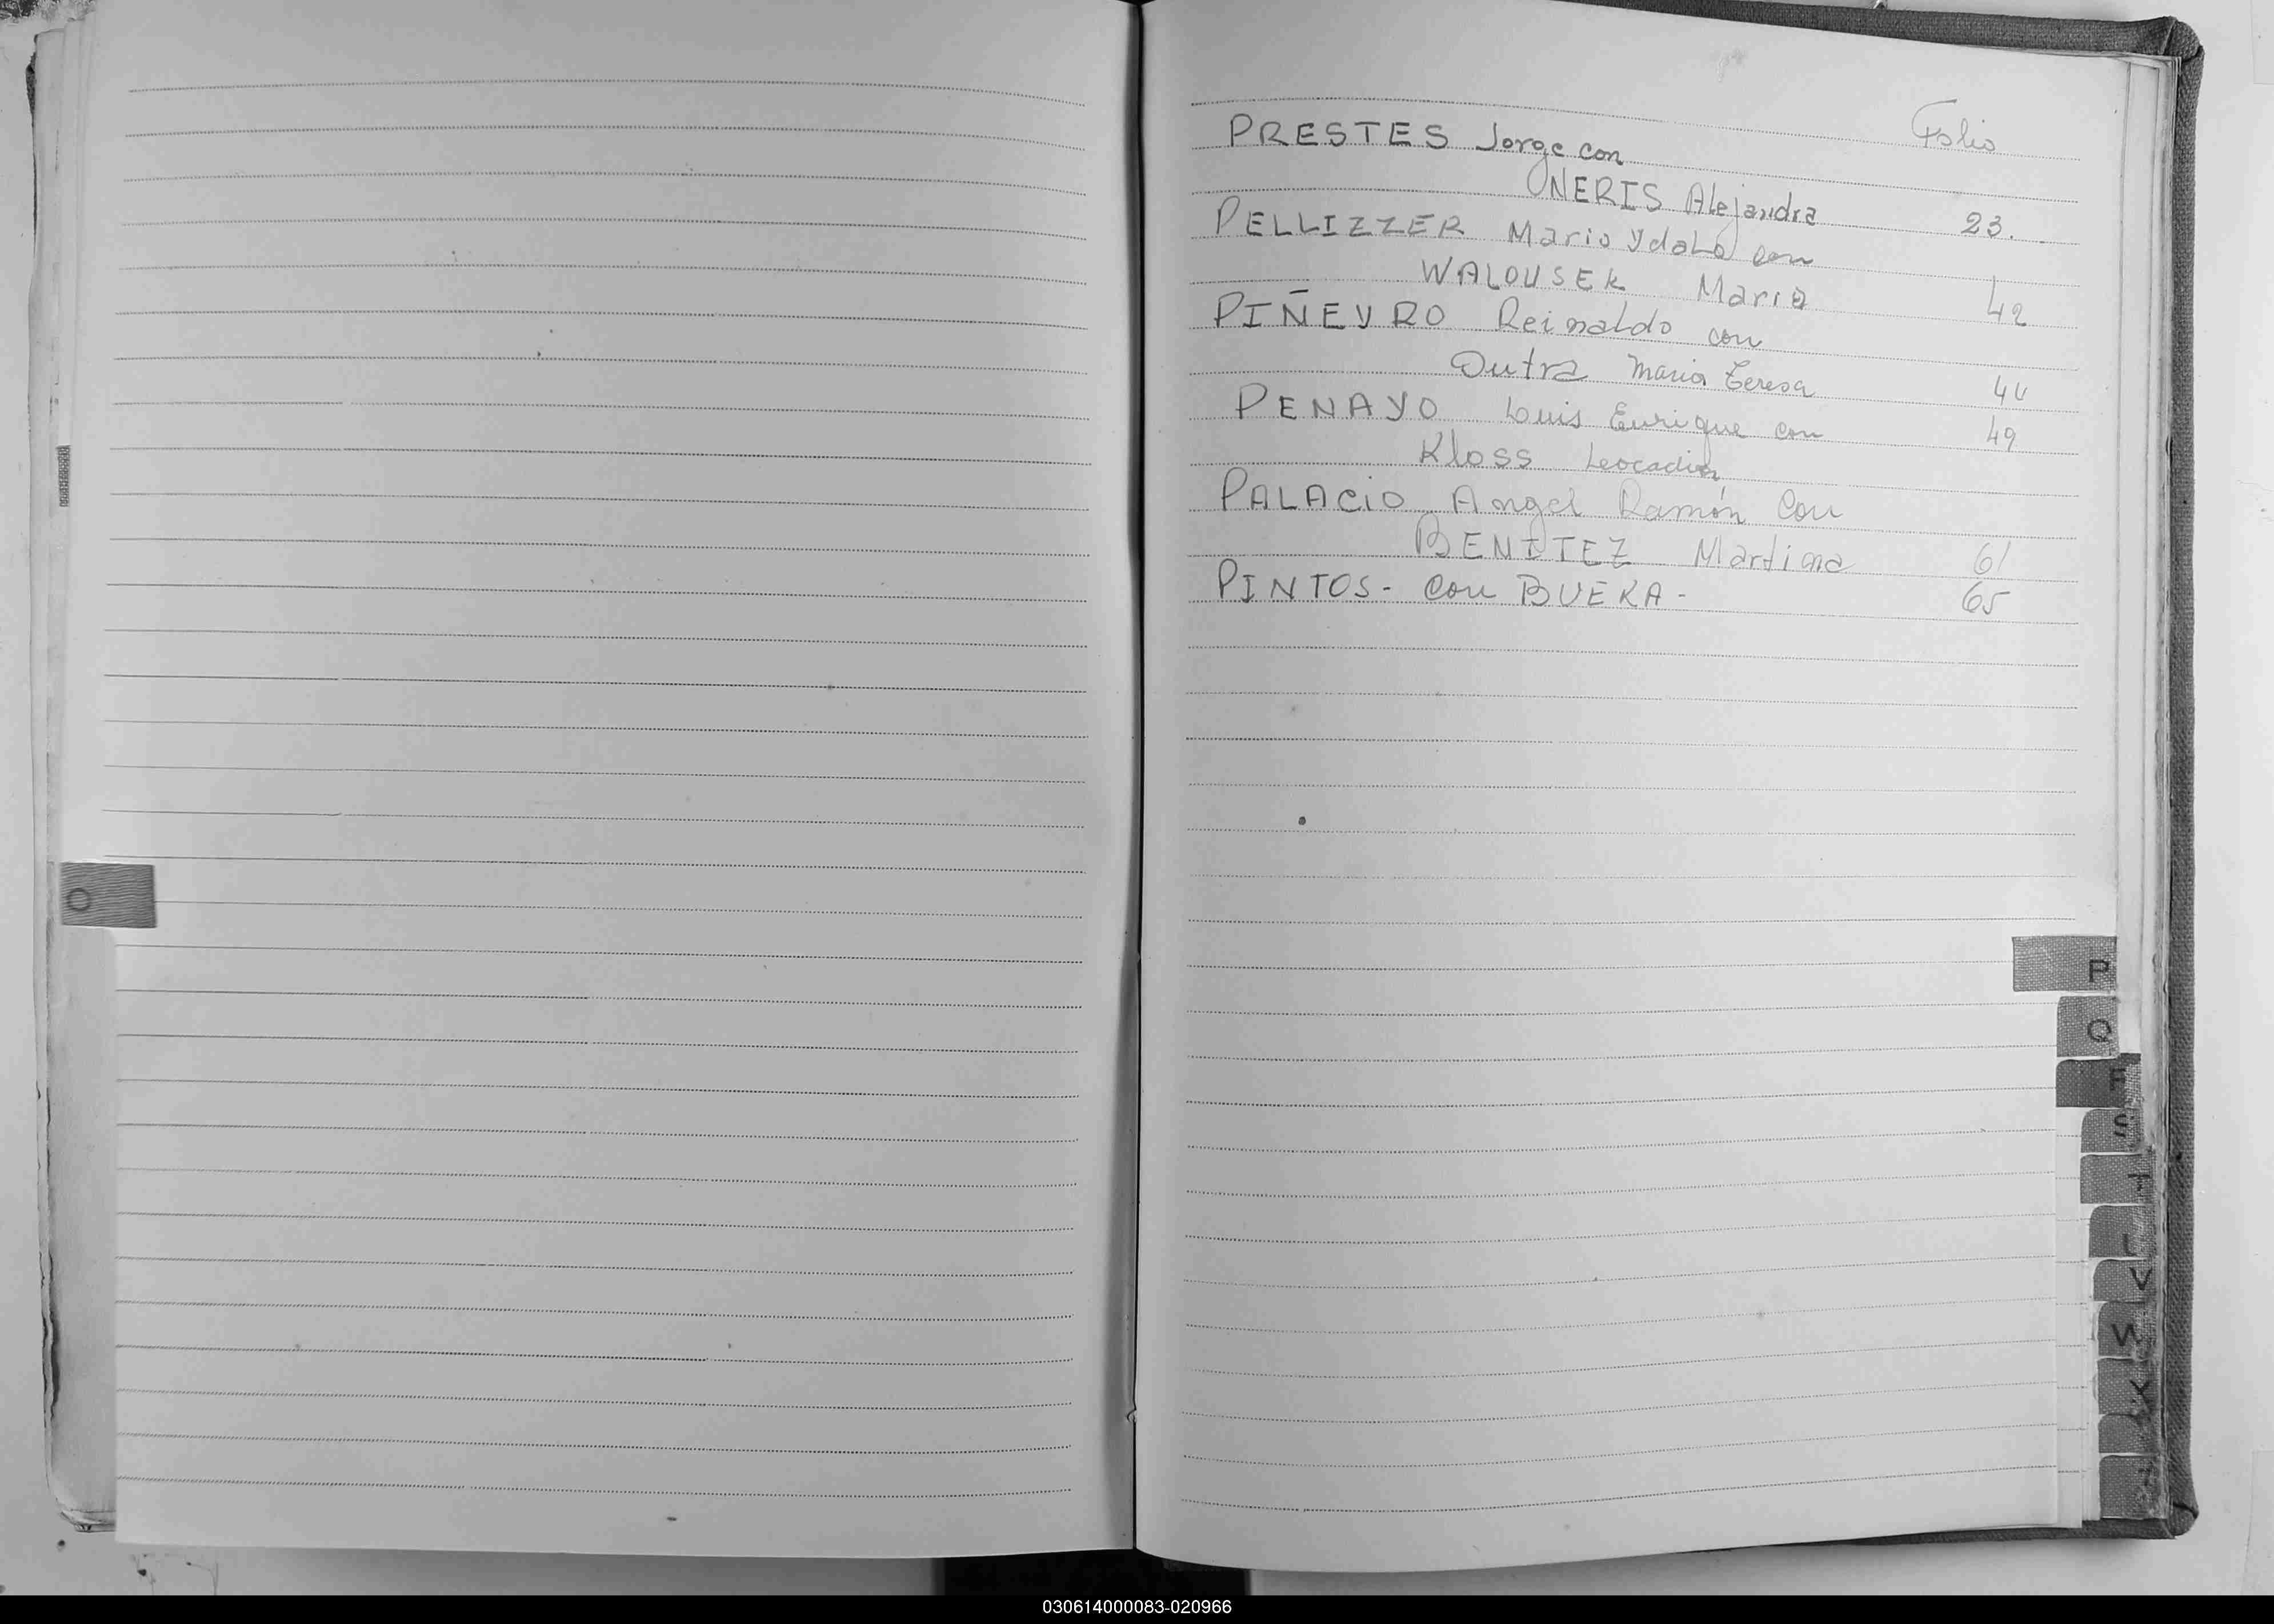 Folio
PRESTES Jorge con
NERIS Alejandra 23.
PELLIZZER Mario Ydalo con
WALOUSEK Maria 42
PIÑEYRO Reinaldo con
Dutra Maria Teresa 44
PENAYO Luis Enrique con 49
Kloss Leocadia
PALACIO Angel Ramón Con
BENITEZ Martina 61
PINTOS - Con BUEKA - 65
O
P
Q
S
T
V
W
X
030614000083-020966